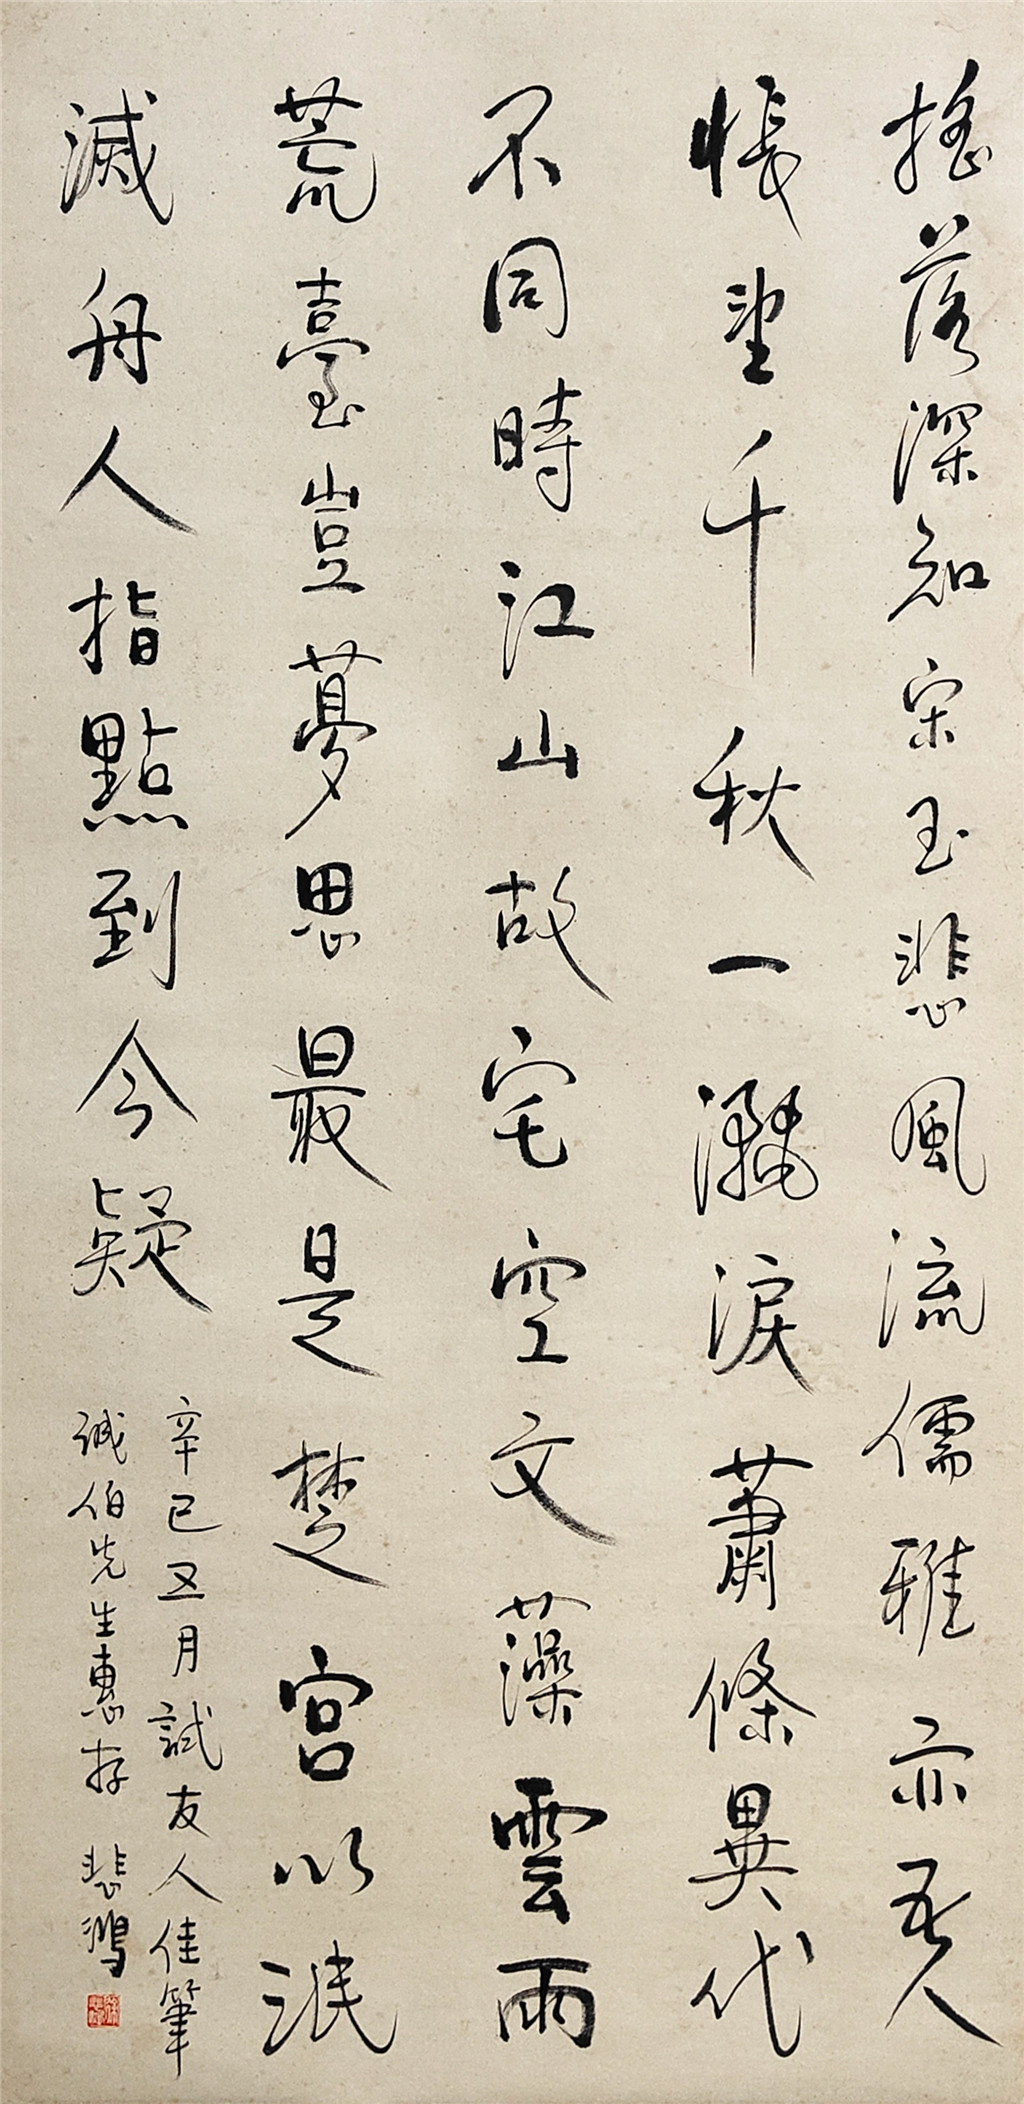 搖落深知宋玉悲風流儒雅亦吾人
悵望千秋一灑淚蕭條異代
不同時江山故宅空文藻雲雨
荒臺豈夢思最是楚宮以泯
滅舟人指點到今疑
辛巳五月試友人佳筆
誠伯先生惠存 悲鴻